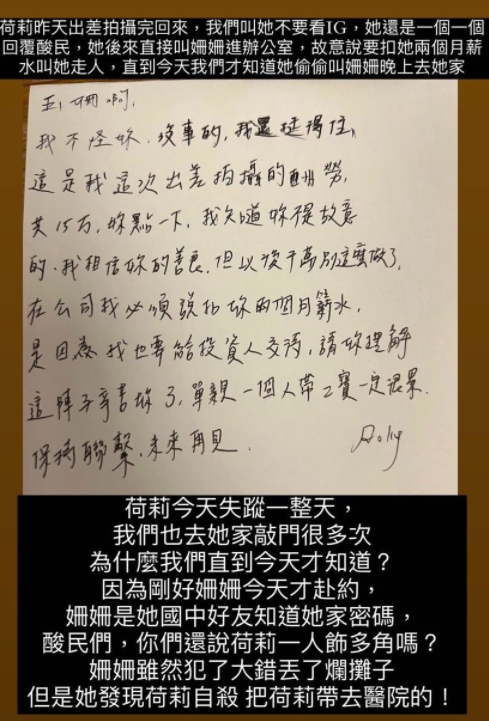 荷莉昨天出差拍攝完回來，我們叫她不要看IG，她還是一個一個
回覆酸民，她後來直接叫姍姍進辦公室，故意說要扣她兩個月薪
水叫她走人，直到今天我們才知道她偷偷叫姍姍晚上去她家
姍啊，
我不怪妳，沒事的，我還挺得住，
這是我這次出差拍攝的酬勞，
共15万，妳點一下，我知道妳不是故意
的，我相信妳的善良，但以後千萬別這麼做了，
在公司我必須說扣妳兩個月薪水，
是因為我也要給投資人交待，請妳理解
這陣子辛苦妳了，單親一個人帶2寶一定很累.
保持聯繫，未來再見.
荷莉今天失蹤一整天，
我們也去她家敲門很多次
為什麼我們直到今天才知道？
因為剛好姍姍今天才赴約，
姍姍是她國中好友知道她家密碼，
酸民們，你們還說荷莉一人飾多角嗎？
姍姍雖然犯了大錯丟了爛攤子
但是她發現荷莉自殺 把荷莉帶去醫院的！